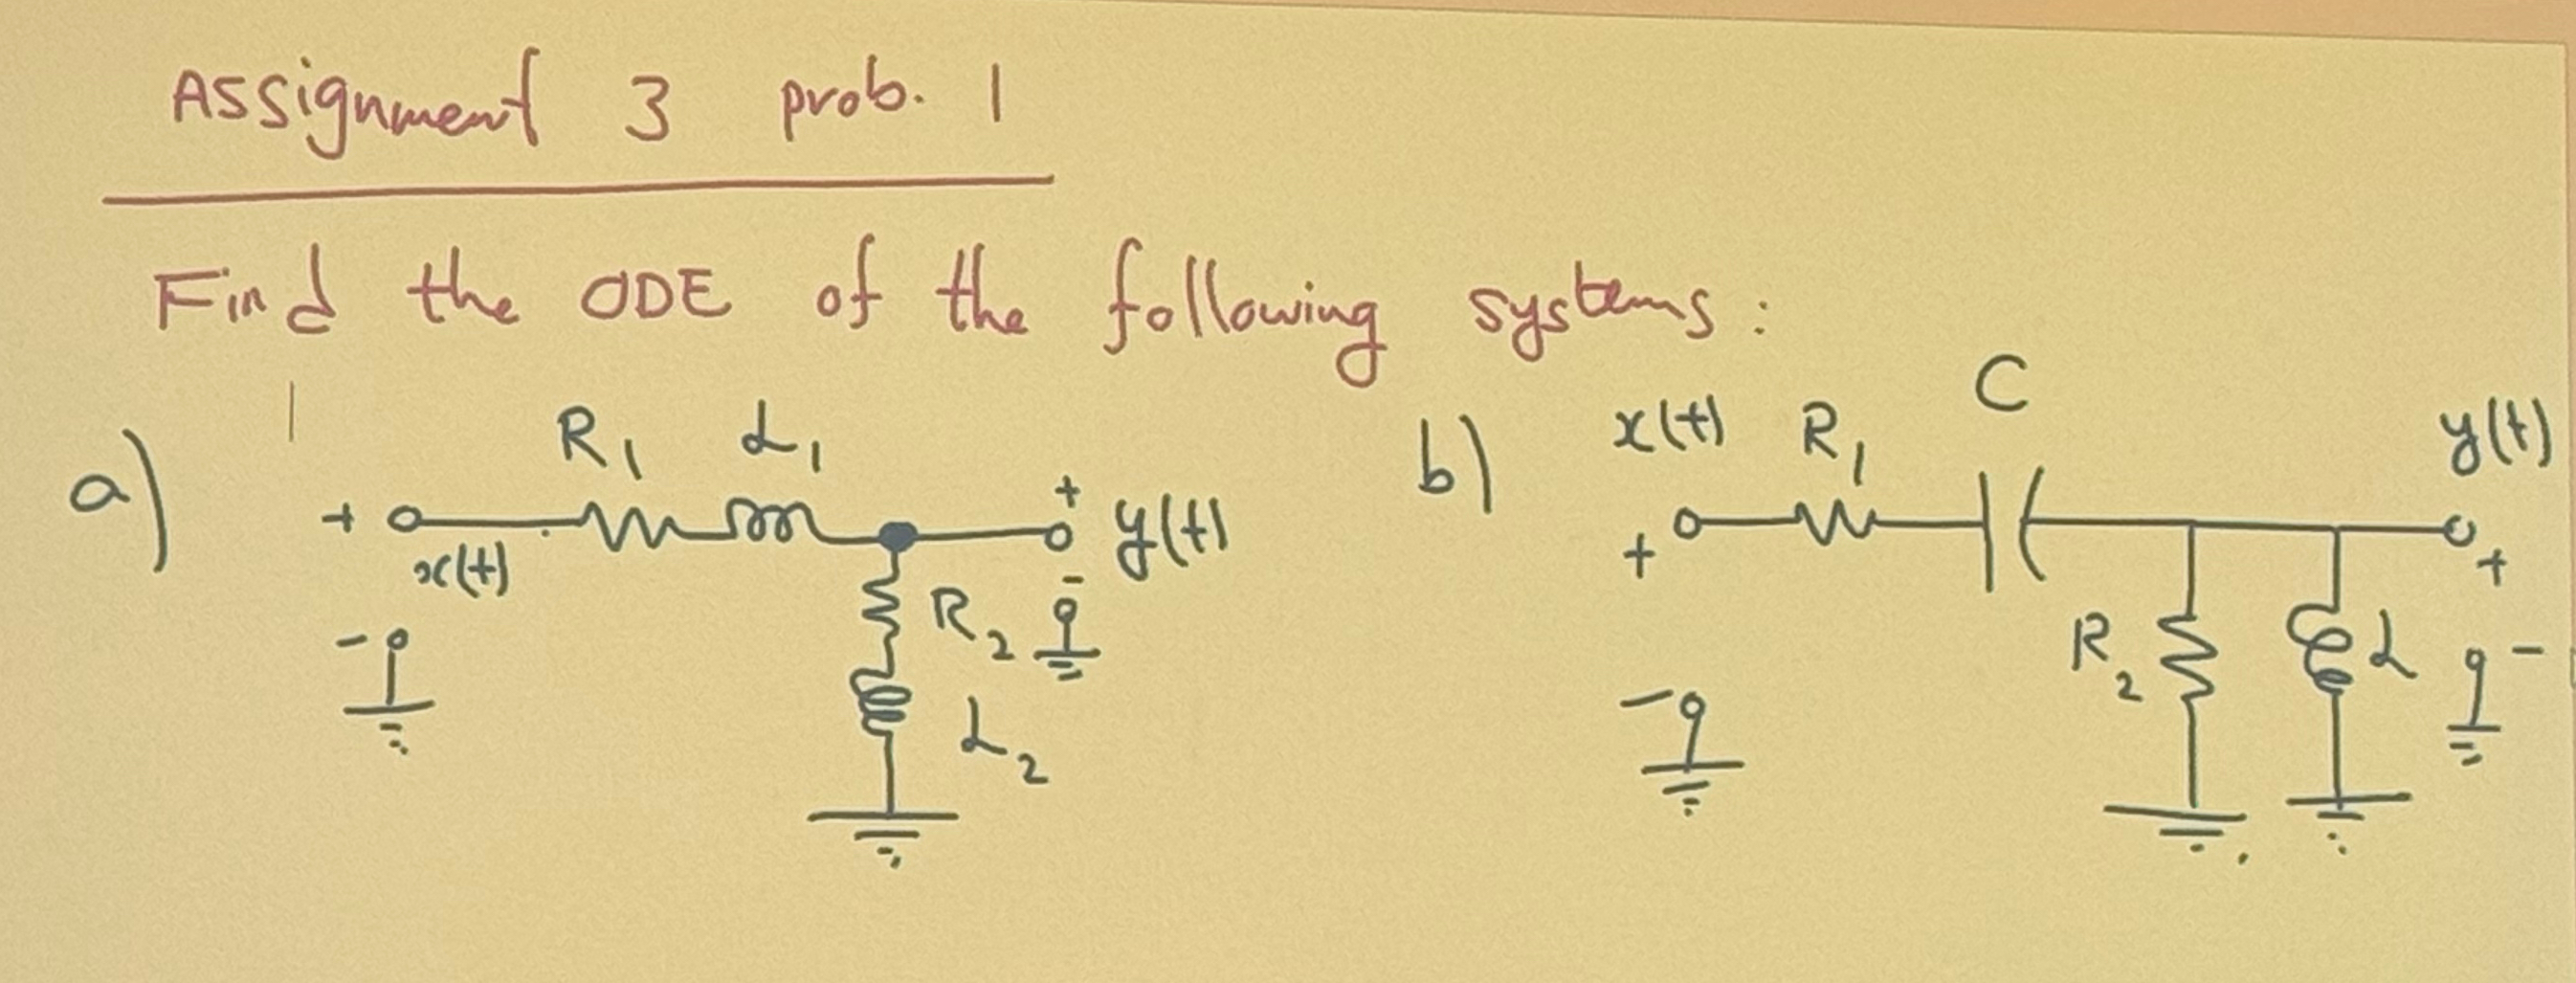 Assignment 3 prob. 1
Find the ODE of the following systems:
a)
+ x(t) -
R1 L1
+ y(t) -
R2
L2
b)
x(t) R1 C y(t)
+ - R2 L + -